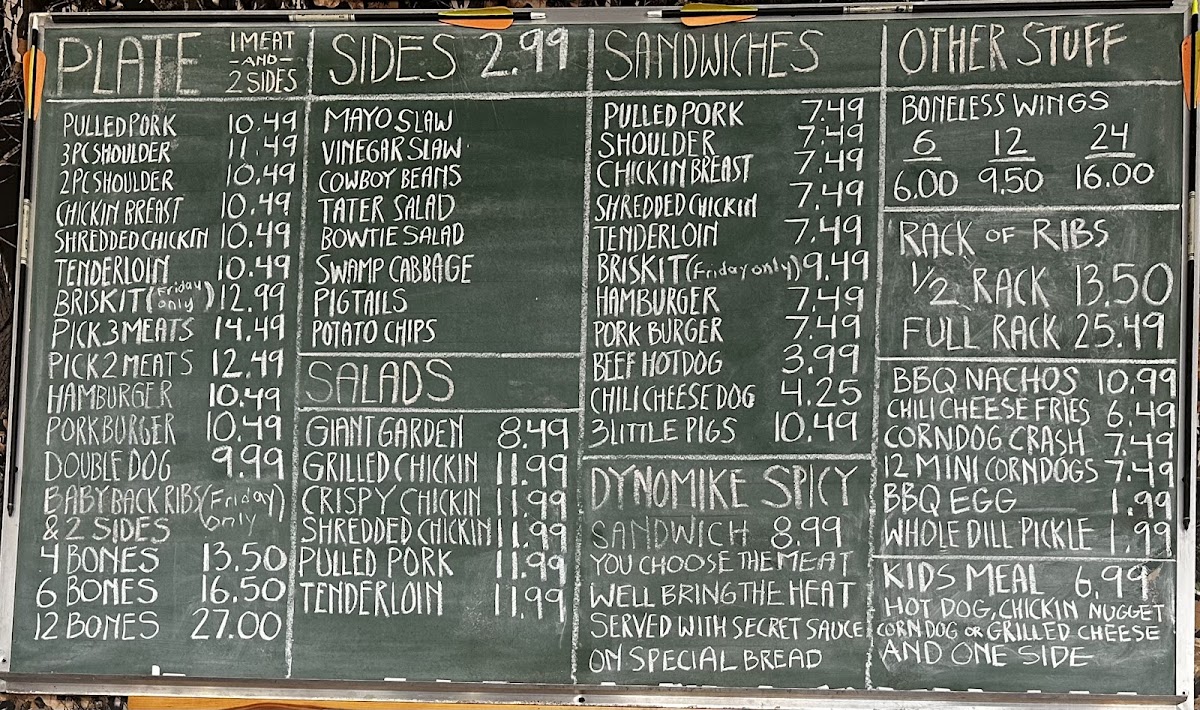 PLATE 1 MEAT
-AND-
2 SIDES
PULLED PORK 10.49
3PC SHOULDER 11.49
2PC SHOULDER 10.49
CHICKIN BREAST 10.49
SHREDDED CHICKIN 10.49
TENDERLOIN 10.49
BRISKIT (Friday only) 12.99
PICK 3 MEATS 14.49
PICK 2 MEATS 12.49
HAMBURGER 10.49
PORK BURGER 10.49
DOUBLE DOG 9.99
BABY BACK RIBS (Friday only)
& 2 SIDES
4 BONES 13.50
6 BONES 16.50
12 BONES 27.00
SIDES 2.99
MAYO SLAW
VINEGAR SLAW
COWBOY BEANS
TATER SALAD
BOWTIE SALAD
SWAMP CABBAGE
PIGTAILS
POTATO CHIPS
SALADS
GIANT GARDEN 8.49
GRILLED CHICKIN 11.99
CRISPY CHICKIN 11.99
SHREDDED CHICKIN 11.99
PULLED PORK 11.99
TENDERLOIN 11.99
SANDWICHES
PULLED PORK 7.49
SHOULDER 7.49
CHICKIN BREAST 7.49
SHREDDED CHICKIN 7.49
TENDERLOIN 7.49
BRISKIT (Friday only) 9.49
HAMBURGER 7.49
PORK BURGER 7.49
BEEF HOTDOG 3.99
CHILI CHEESE DOG 4.25
3 LITTLE PIGS 10.49
DYNOMIKE SPICY
SANDWICH 8.99
YOU CHOOSE THE MEAT
WELL BRING THE HEAT
SERVED WITH SECRET SAUCE
ON SPECIAL BREAD
OTHER STUFF
BONELESS WINGS
6 12 24
6.00 9.50 16.00
RACK OF RIBS
1/2 RACK 13.50
FULL RACK 25.49
BBQ NACHOS 10.99
CHILI CHEESE FRIES 6.49
CORNDOG CRASH 7.49
12 MINI CORNDOGS 7.49
BBQ EGG 1.99
WHOLE DILL PICKLE 1.99
KIDS MEAL 6.99
HOT DOG, CHICKIN NUGGET
CORNDOG OR GRILLED CHEESE
AND ONE SIDE